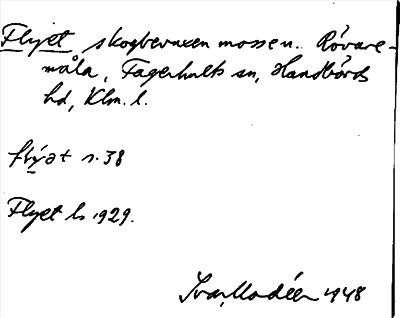 Flyet skogbevuxen mosse n. Rövare-
måla, Fagerhults sn, Handbörds
hd, Klm. l.
flýət s. 38
Flyet ls 1929.
Ivar Modéer 1948